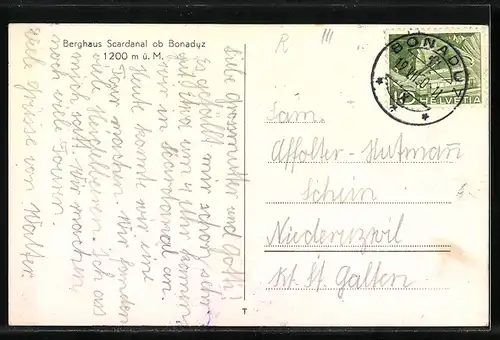 Berghaus Scardanal ob Bonaduz
1200 m ü. M.
Liebe Grossmutter und Gotti!
Es gefällt mir schon sehr
gut. Etwa um 4 Uhr kamen
wir in Scardanal an.
Heute konnte wir eine
Tour machen. Wir fanden
viele Heidelbeeren. Ich ass
mich satt. Wir machen
noch viele Touren.
Viele Grüsse von Walter
T
BONADUZ
10
HELVETIA
Fam.
Affolter-Hutmann
Schein
Niederuzwil
Kt. St. Gallen